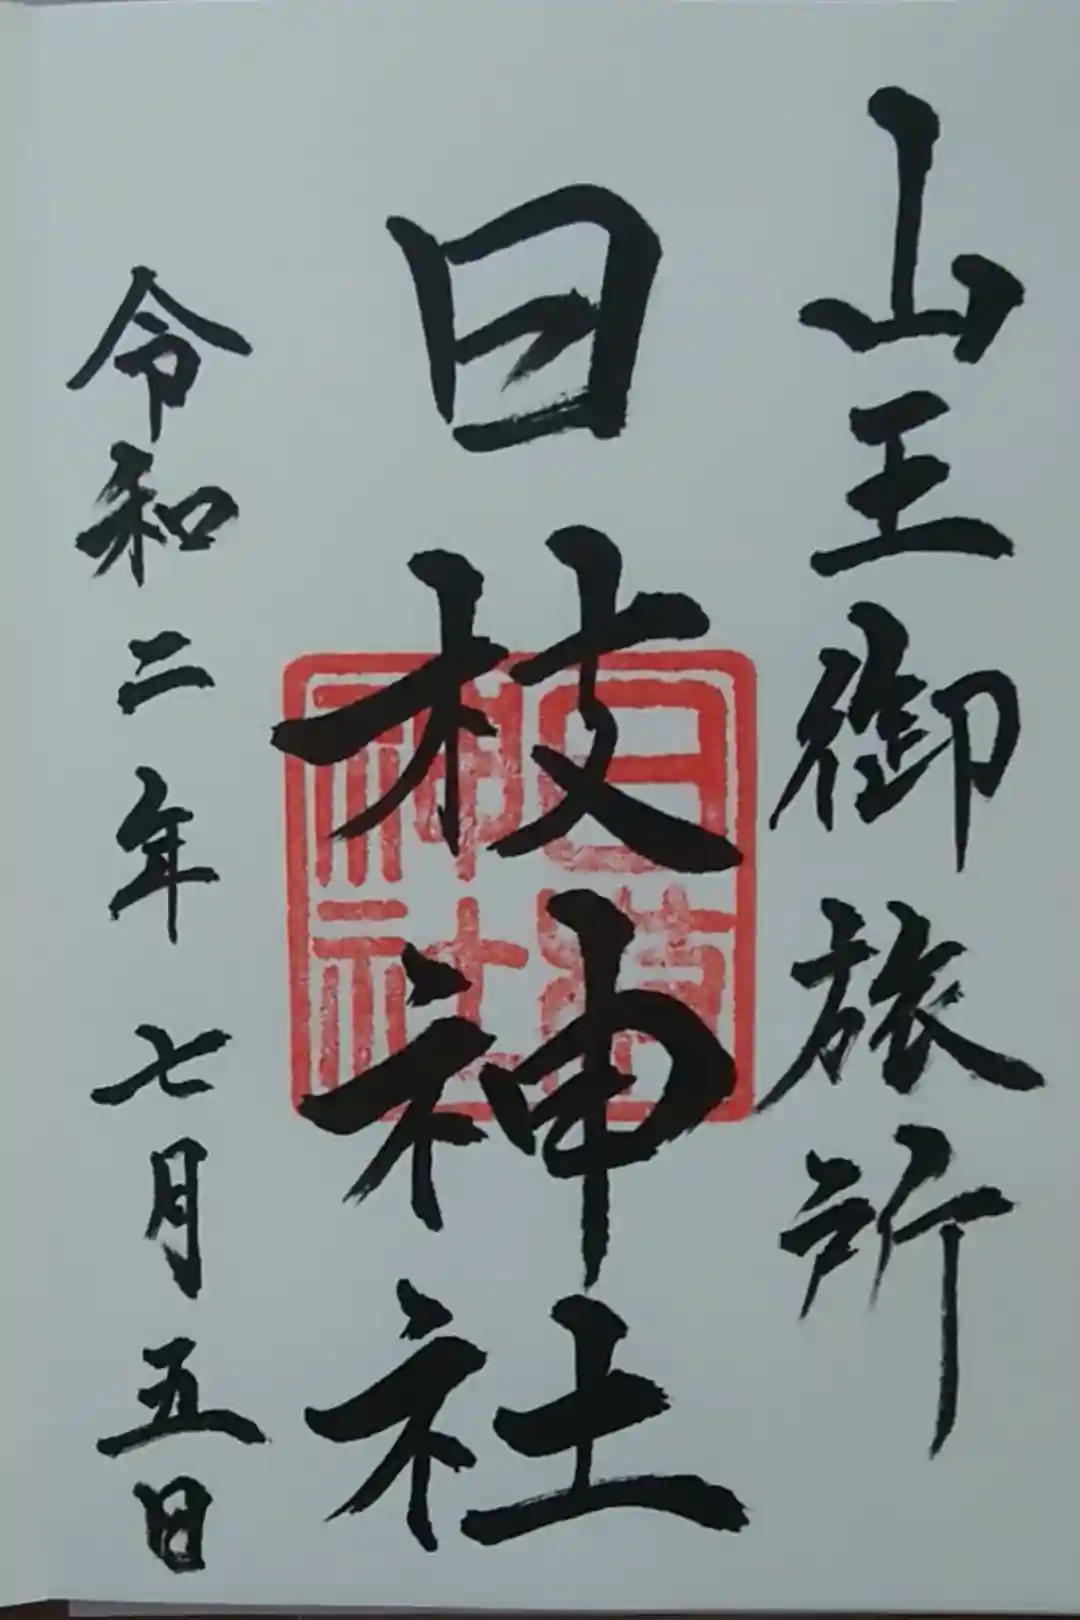 山王御旅所
日枝神社
日枝
神社
令和二年七月五日